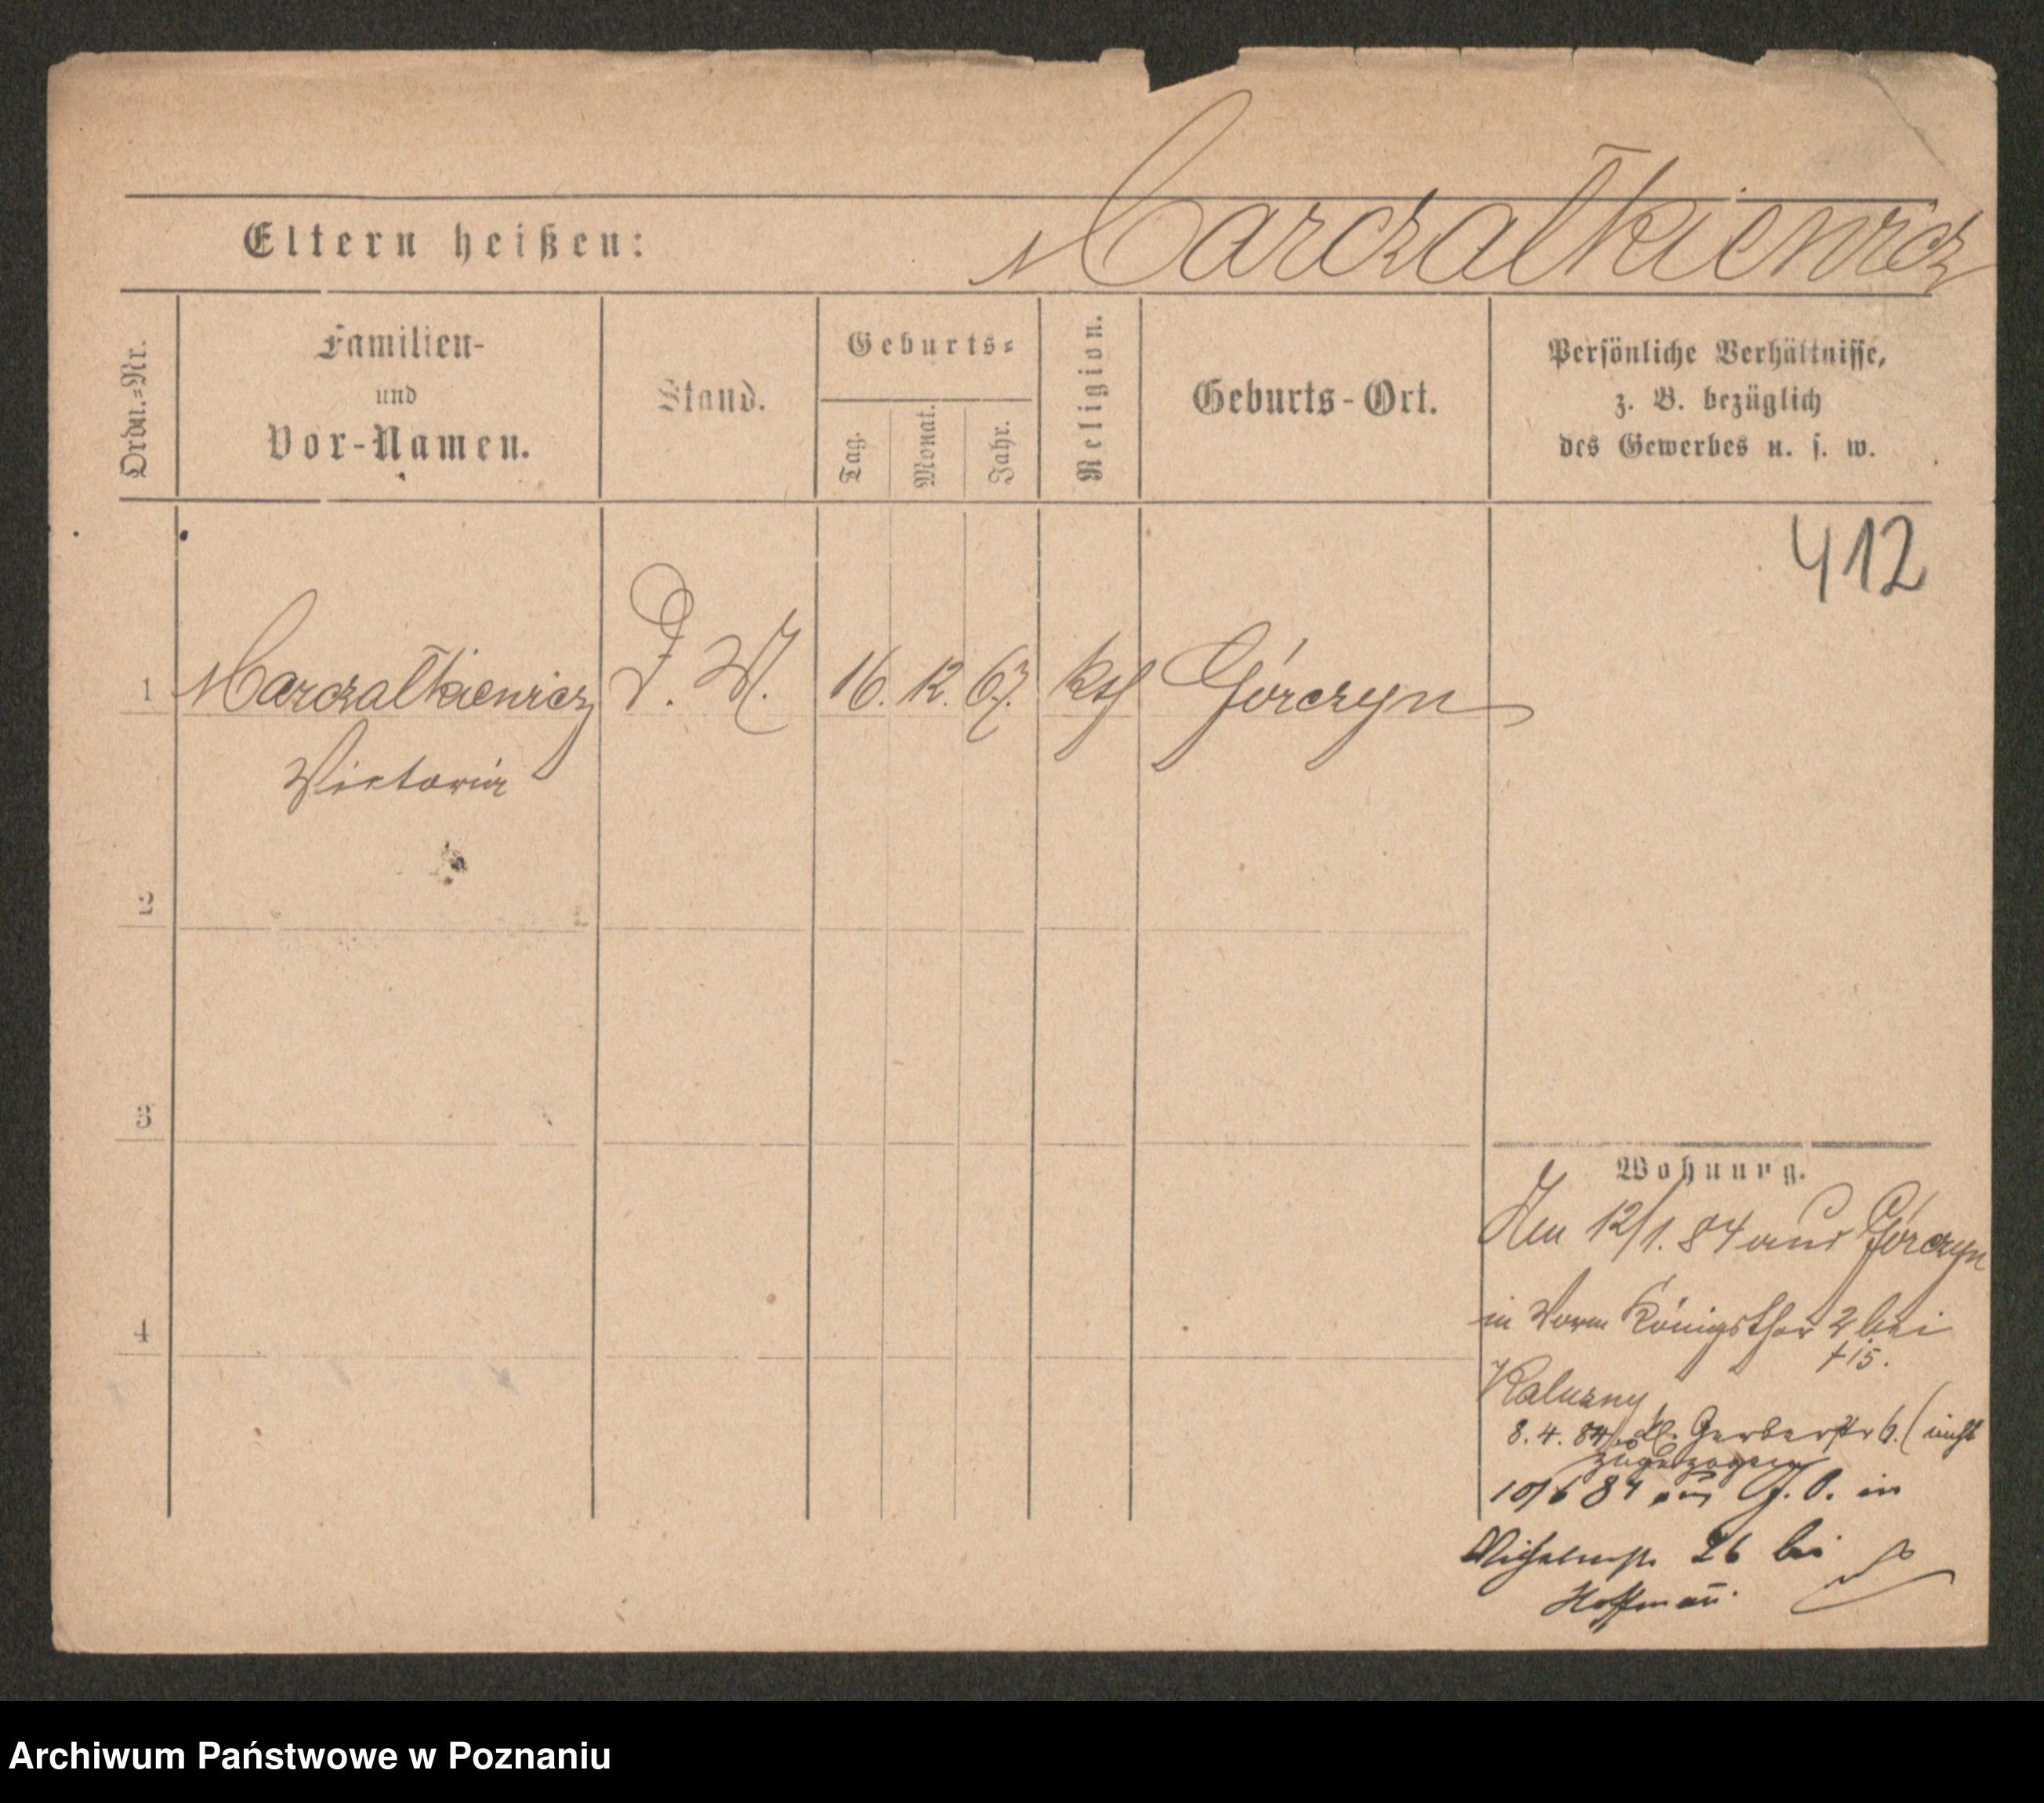 Marczałkiewicz
Eltern heißen:
Ordn.=Nr.
Familien-
und
Vor-Namen.
Stand.
Geburts=
Tag.
Monat.
Jahr.
Religion.
Geburts-Ort.
Persönliche Verhältnisse,
z. B. bezüglich
des Gewerbes u. s. w.
412
1 Marczałkiewicz D. M. 16. 12. 67. kth Górczyn
Victoria
2
3
4
Wohnung.
Am 12/1. 84 aus Górczyn
in Vorm Königsthor 2 bei
+15.
Kaluzny
8. 4. 84 kl. Gerberstr 6. (nicht
zugezogen
10/6 84 aus J. O. in
26 bei
Hoffman̄.
Archiwum Państwowe w Poznaniu